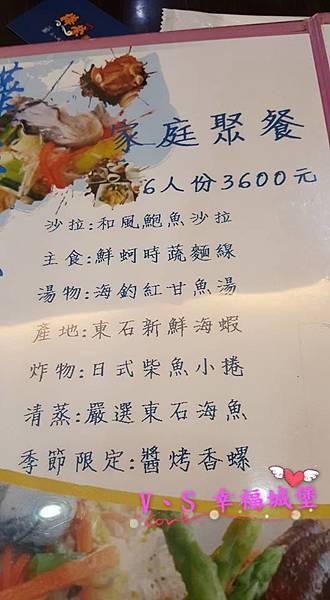 家庭聚餐
6人份3600元
沙拉:和風鮑魚沙拉
主食:鮮蚵時蔬麵線
湯物:海釣紅甘魚湯
產地:東石新鮮海蝦
炸物:日式柴魚小捲
清蒸:嚴選東石海魚
季節限定:醬烤香螺
V、S 幸福城堡
Love